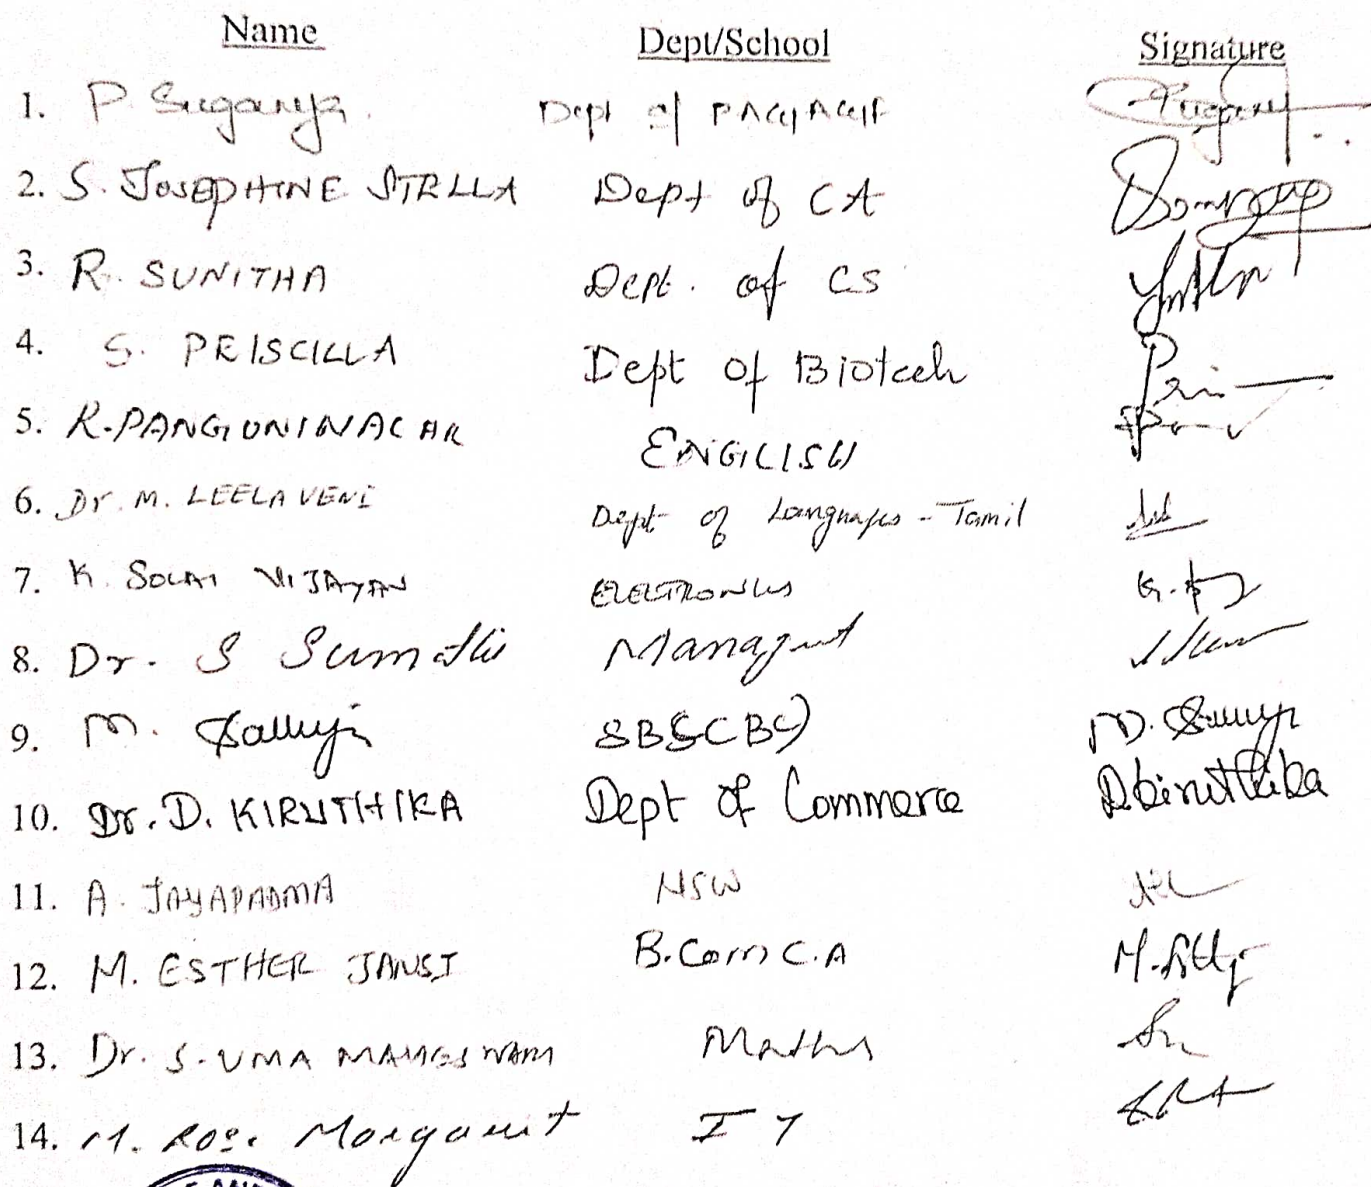 Name Dept/School Signature
1. P. Suganya. Dept of
2. S. JOSEPHINE STELLA Dept of CA
3. R. SUNITHA Dept. of CS
4. S. PRISCILLA Dept of Biotech Pri
5. R. PANGUNINACHAR ENGLISH
6. Dr. M. LEELAVENI Dept of Languages - Tamil
7. K. SOLAI VIJAYAN ELECTRONICS
8. Dr. S Sumathi Managmt
9. M. SBS(BC) M.
10. Dr. D. KIRUTHIKA Dept of Commerce D. Kiruthika
11. A. JAYAPADMA
12. M. ESTHER JANSI B.Com C.A
13. Dr. S. UMA MAHESWARI Maths
14. M. Rose Margaret IT